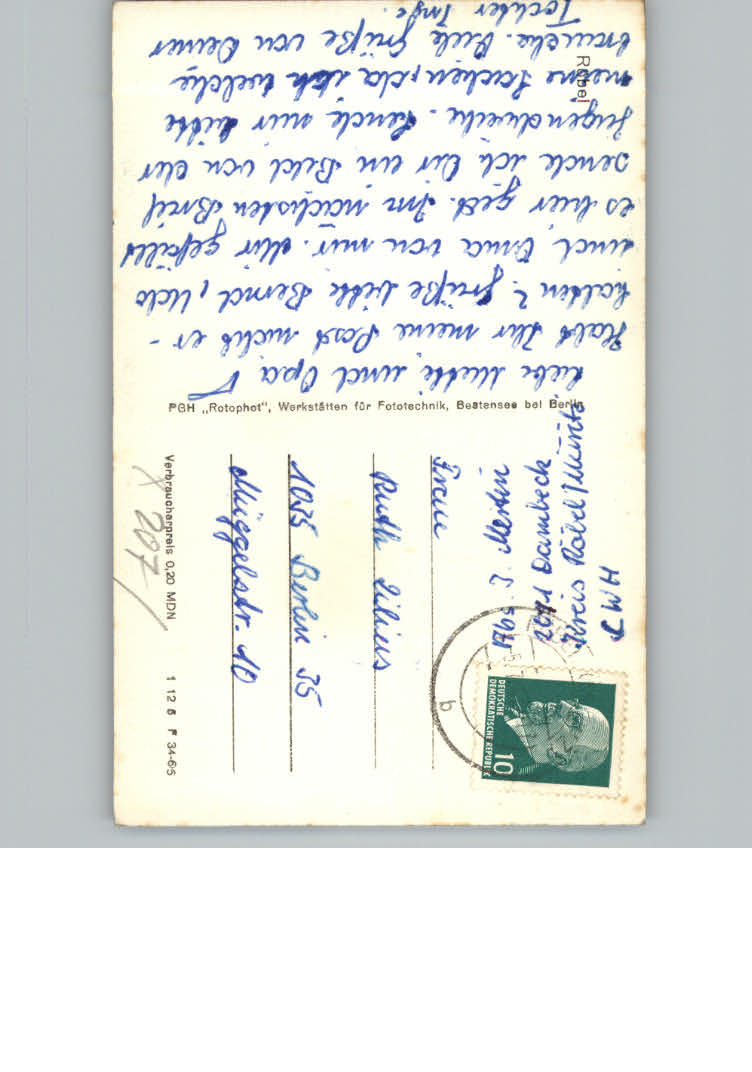 Röbel
Liebe Mutti und Opa!
Habt Ihr meine Post nicht er-
halten? Grüße bitte Bernd, Udo
und Oma von mir. Mir gefällt
es hier gut. Im nächsten Brief
sende ich Dir ein Bild von der
Jugendweihe. Sende mir bitte
meine Sachen, da ich welche
brauche. Viele Grüße von Deiner
Tochter Inge.
PGH „Rotophot", Werkstätten für Fototechnik, Bestensee bei Berlin
J. Mertin
Dambeck
Kreis Röbel/Müritz
LWH
Frau
Ruth
1035 Berlin 35
Müggelstr. 10
DEUTSCHE
DEMOKRATISCHE REPUBLIK
10
b
Verbraucherpreis 0,20 MDN
1 12 6 F 34-6/5
207